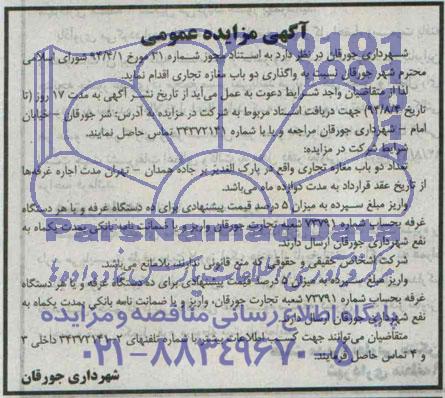 آگهی مزایده عمومی
شهرداری جورقان در نظر دارد به استناد مجوز شماره ۳۱ مورخ ۹۴/۴/۱ شورای اسلامی
محترم شهر جورقان نسبت به واگذاری دو باب مغازه تجاری اقدام نماید.
لذا از متقاضیان واجد شرایط دعوت به عمل می‌آید از تاریخ نشر آگهی به مدت ۱۷ روز (تا
تاریخ ۹۴/۸/۴) جهت دریافت اسناد مربوط به شرکت در مزایده به آدرس: شهر جورقان - خیابان
امام - شهرداری جورقان مراجعه و یا با شماره ۳۴۳۷۲۱۴۱ تماس حاصل نمایند.
شرایط شرکت در مزایده:
تعداد دو باب مغازه تجاری واقع در پارک الغدیر بر جاده همدان - تهران مدت اجاره غرفه‌ها
از تاریخ عقد قرارداد به مدت دوازده ماه می‌باشد.
واریز مبلغ سپرده به میزان ۵ درصد قیمت پیشنهادی برای ده دستگاه غرفه و یا هر دستگاه
غرفه بحساب شماره ۷۳۷۹۱ شعبه تجارت جورقان واریز و یا ضمانت نامه بانکی بمدت یکماه به
نفع شهرداری جورقان ارسال دارند.
شرکت اشخاص حقیقی و حقوقی که منع قانونی ندارند بلامانع می‌باشد.
واریز مبلغ سپرده به میزان ۵ درصد قیمت پیشنهادی برای ده دستگاه غرفه و یا هر دستگاه
غرفه بحساب شماره ۷۳۷۹۱ شعبه تجارت جورقان، واریز و یا ضمانت نامه بانکی بمدت یکماه به
نفع شهرداری جورقان ارسال دارند.
متقاضیان می‌توانند جهت کسب اطلاعات بیشتر با شماره تلفنهای ۲-۳۴۳۷۲۱۴۱ داخلی ۳
و ۴ تماس حاصل فرمایند.
شهرداری جورقان
ParsNamadData
پایگاه اطلاع رسانی مناقصه و مزایده
۰۲۱-۸۸۳۴۹۶۷۰-۵